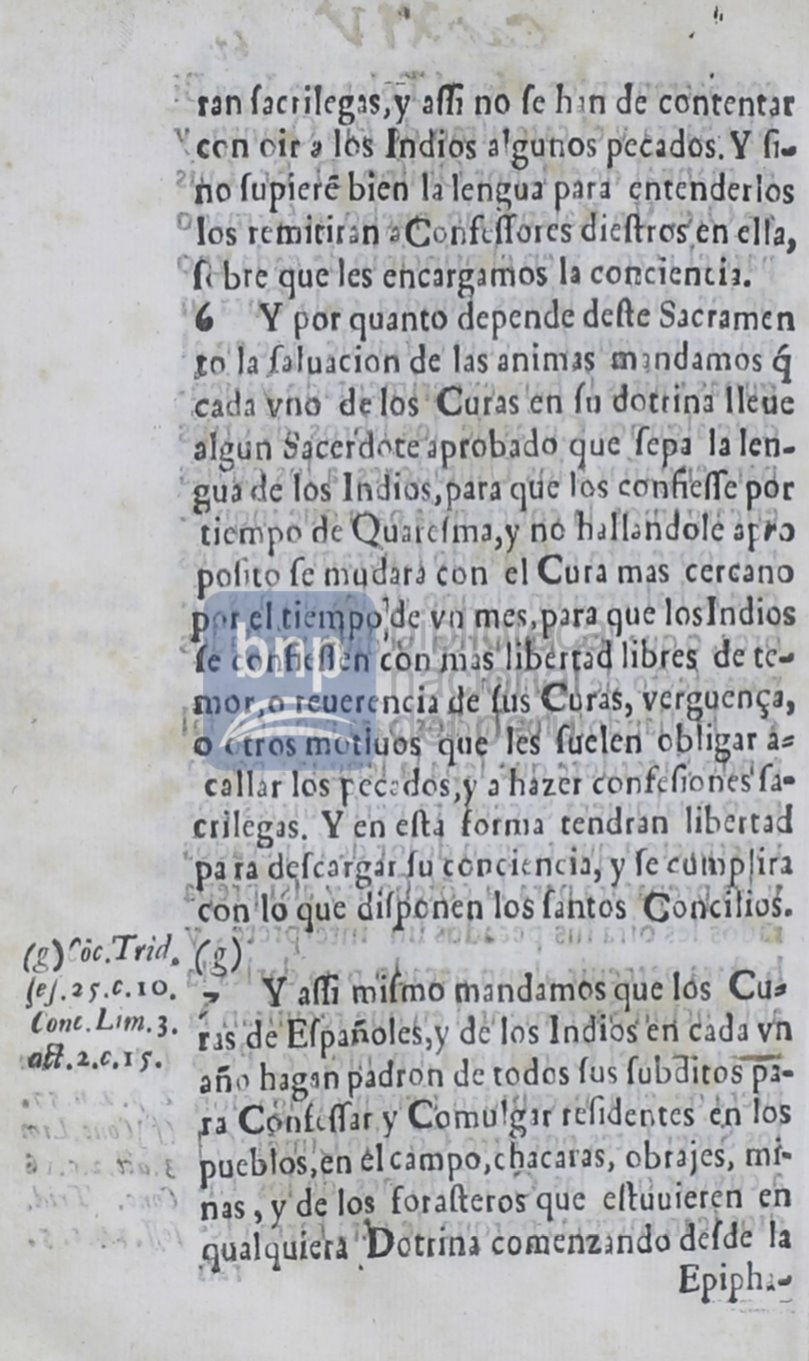 ran sacrilegas, y assi no se han de contentar
con oir a los Indios algunos pecados. Y si-
no supierẽ bien la lengua para entenderlos
los remitiran a Confessores diestros en ella,
sobre que les encargamos la conciencia.
6 Y por quanto depende deste Sacramen
to la saluacion de las animas mandamos q̃
cada vno de los Curas en su dotrina lleue
algun Sacerdote aprobado que sepa la len-
gua de los Indios, para que los confiesse por
tiempo de Quaresma, y no hallandole apro
posito se mudara con el Cura mas cercano
por el tiempo de vn mes, para que los Indios
se confiessen con mas libertad libres de te-
mor, o reuerencia de sus Curas, verguença,
o otros motiuos que les suelen obligar a-
callar los pecados, y a hazer confesiones sa-
crilegas. Y en esta forma tendran libertad
para descargar su conciencia, y se cumplira
con lo que disponen los santos Concilios.
(g)
(g) Cõc. Trid.
ses. 25. c. 10.
Conc. Lim. 3.
act. 2. c. 15.
7 Y assi mismo mandamos que los Cu-
ras de Españoles, y de los Indios en cada vn
año hagan padron de todos sus subditos pa-
ra Confessar y Comulgar residentes en los
pueblos, en el campo, chacaras, obrajes, mi-
nas, y de los forasteros que estuuieren en
qualquiera Dotrina comenzando desde la
Epipha-
bnp
biblioteca
nacional
del perú